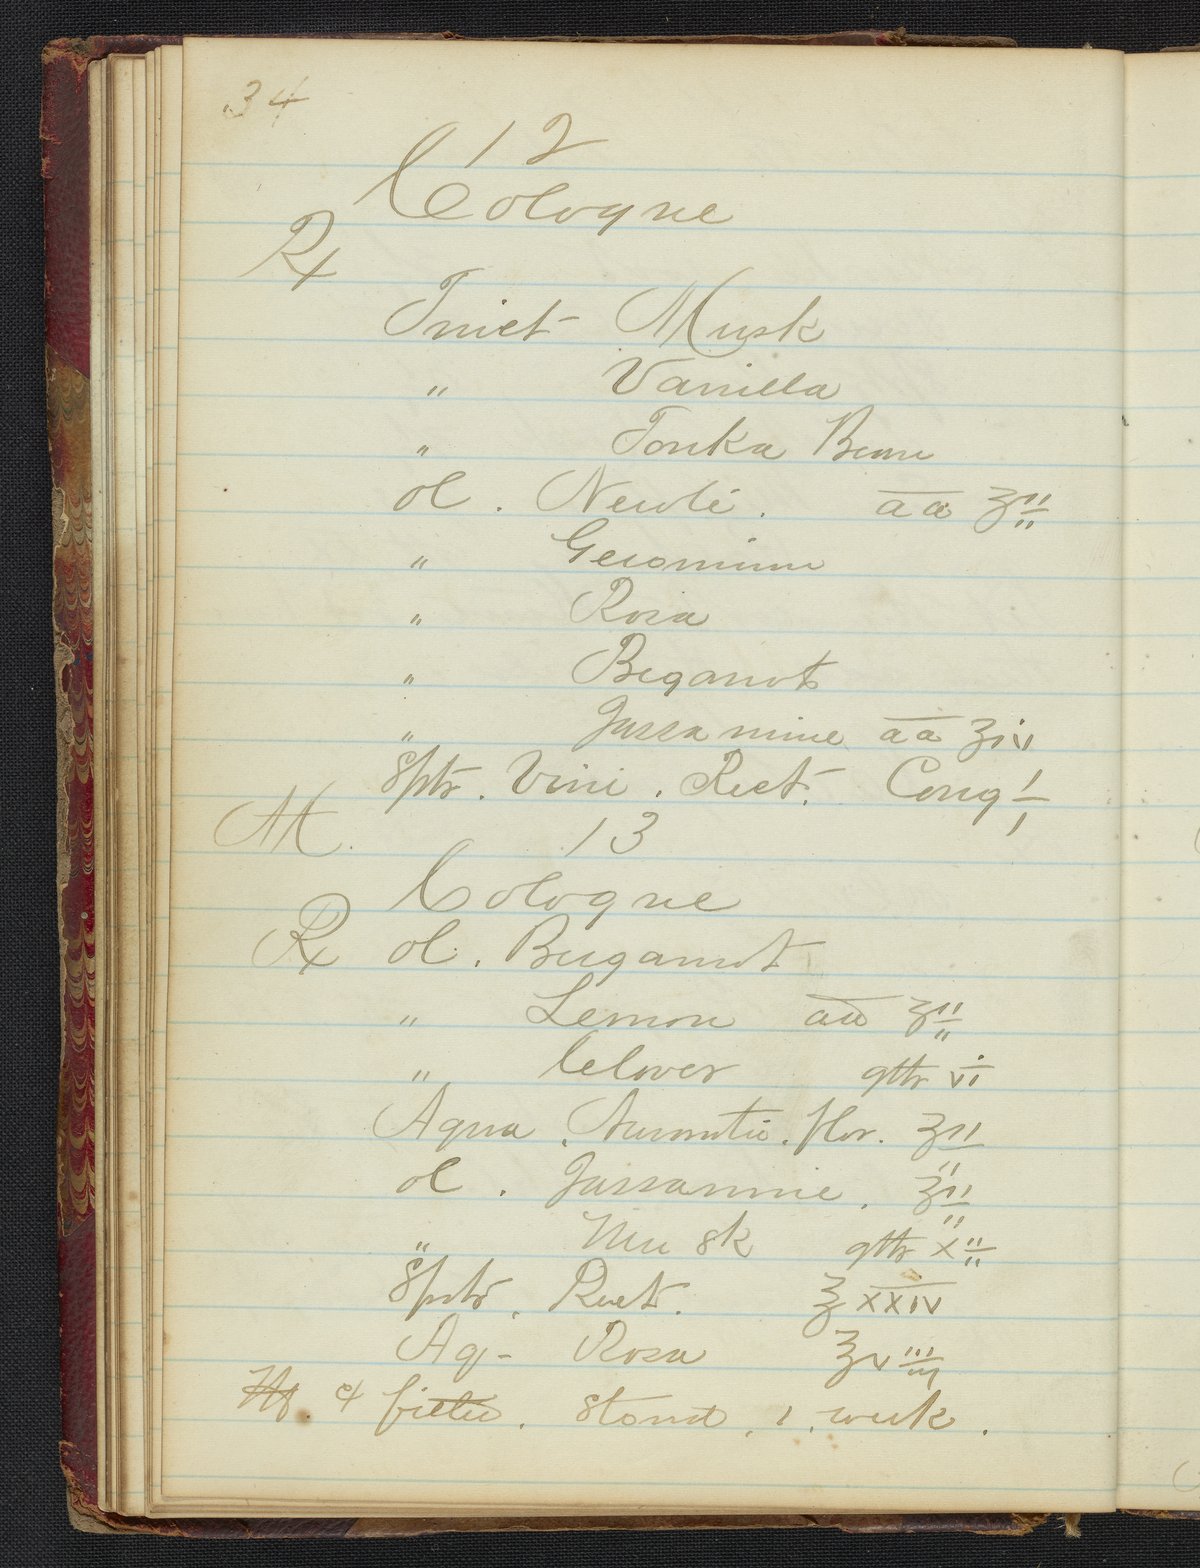 34
12
Cologne
Rx
Tinct Musk
" Vanilla
" Tonka Bean
ol. Neroli. aa ʒii
" Geranium
" Rosa
" Begamot
" Jassamine aa ʒiv
Sptr. Vini. Rect. Cong i
M. 13
Cologne
Rx ol. Burgamot
" Lemon aa ʒii
" Clover gtts vi
Aqua. Auranti. flor. ʒii
ol. Jassamine. ʒii
" Musk gtts xii
Sptr. Rect. ℥xxiv
Aq- Rosa ℥viii
& filter. Stand. 1. week.